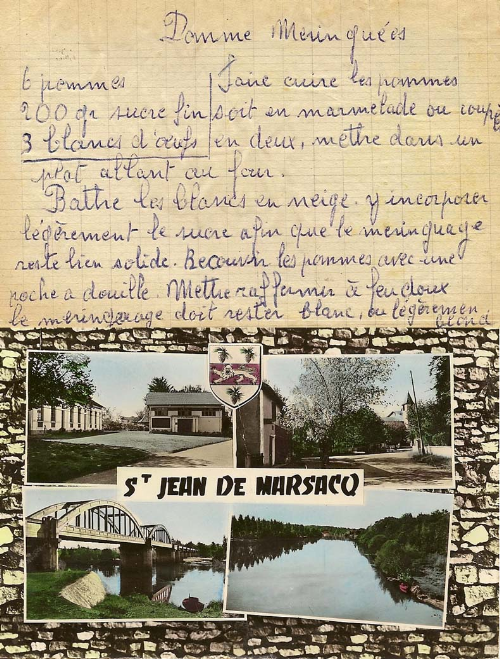 Pomme Meringuées
6 pommes
200 gr sucre fin
3 blancs d'œufs
Faire cuire les pommes
soit en marmelade ou coupé
en deux, mèthre dans un
plat allant au four.
Battre les blancs en neige. y incorporer
légèrement le sucre afin que le meringuage
reste bien solide. Recouvrir les pommes avec une
poche a douille. Methre raffermir à feu doux
le meringuage doit rester blanc, ou légèremen
blond
ST JEAN DE MARSACQ